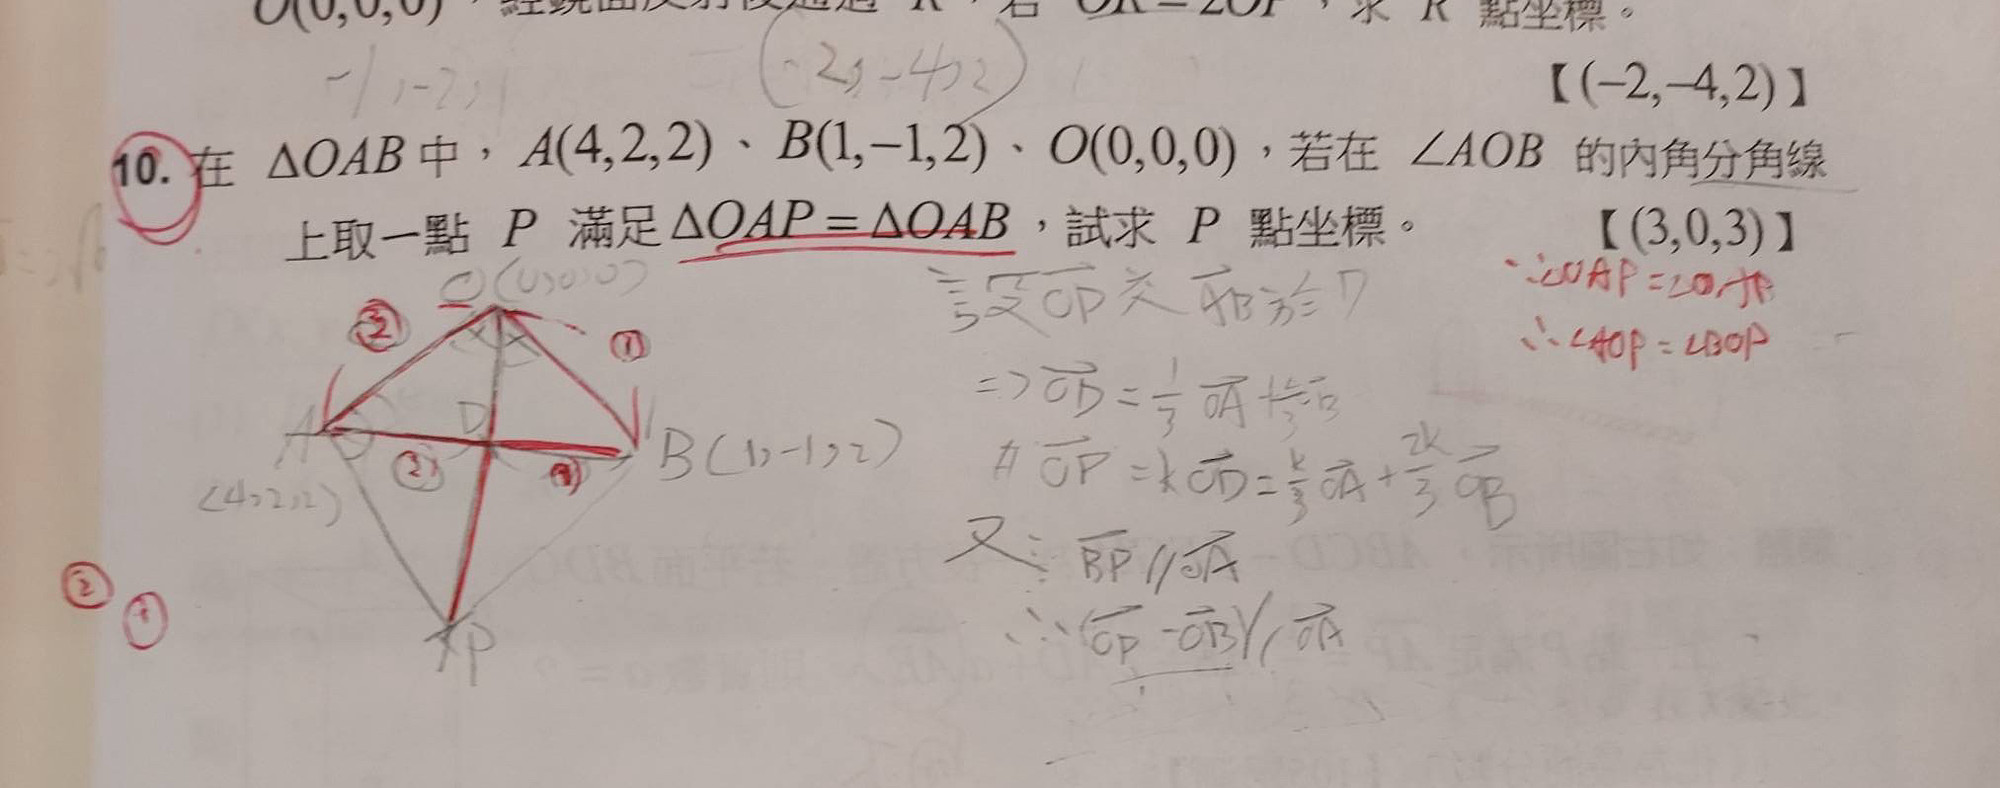 O(0,0,0),經鏡面反射後通過 R,若 OR = 2OP,求 R 點坐標。
-1,-2,1 = (-2,-4,2)
【(−2,−4,2)】
10. 在 ΔOAB 中,A(4,2,2)、B(1,−1,2)、O(0,0,0),若在 ∠AOB 的內角分角線
上取一點 P 滿足 ΔOAP = ΔOAB,試求 P 點坐標。 【(3,0,3)】
O(0,0,0)
② ①
A D B(1,-1,2)
(4,2,2) ②
P
② ①
設 OP 交 AB 於 D
⇒ OD = 1/3 OA +
OP = k OD = k/3 OA + 2k/3 OB
又∵ BP // OA
∴ (OP - OB) // OA
∴ ∠AOP = ∠BOP